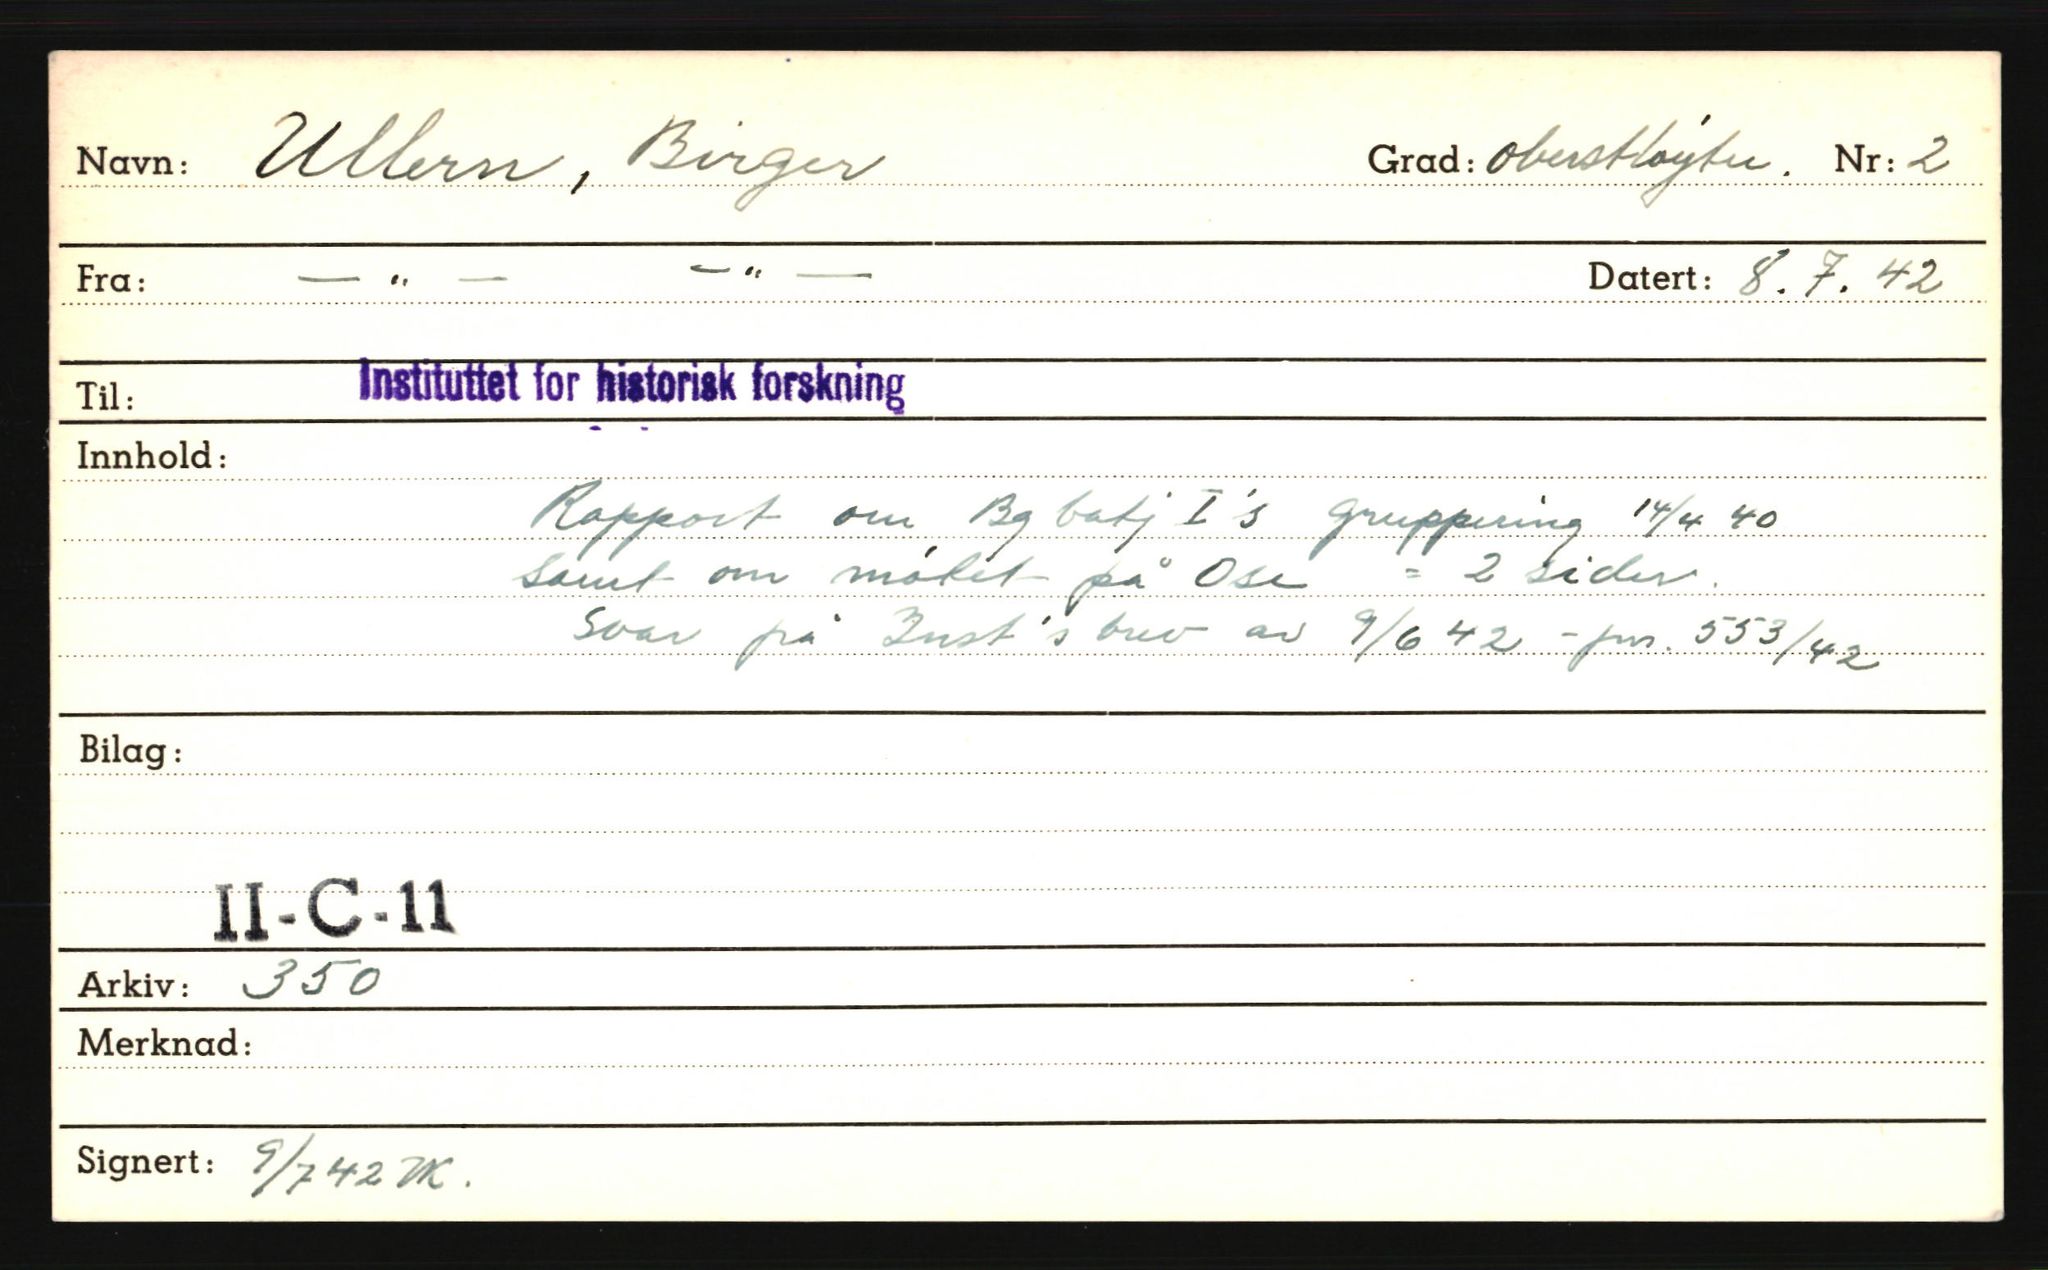 Navn: Ullern, Birger Grad: oberstløytn. Nr: 2
Fra: — " — — " — Datert: 8.7.42
Til: Instituttet for historisk forskning
Innhold:
Rapport om Bg batj I's gruppering 14/4 40
samt om møtet på Ose = 2 sider.
Svar på Inst's brev av 9/6 42 - jnr. 553/42
Bilag:
II-C-11
Arkiv: 350
Merknad:
Signert: 9/7 42